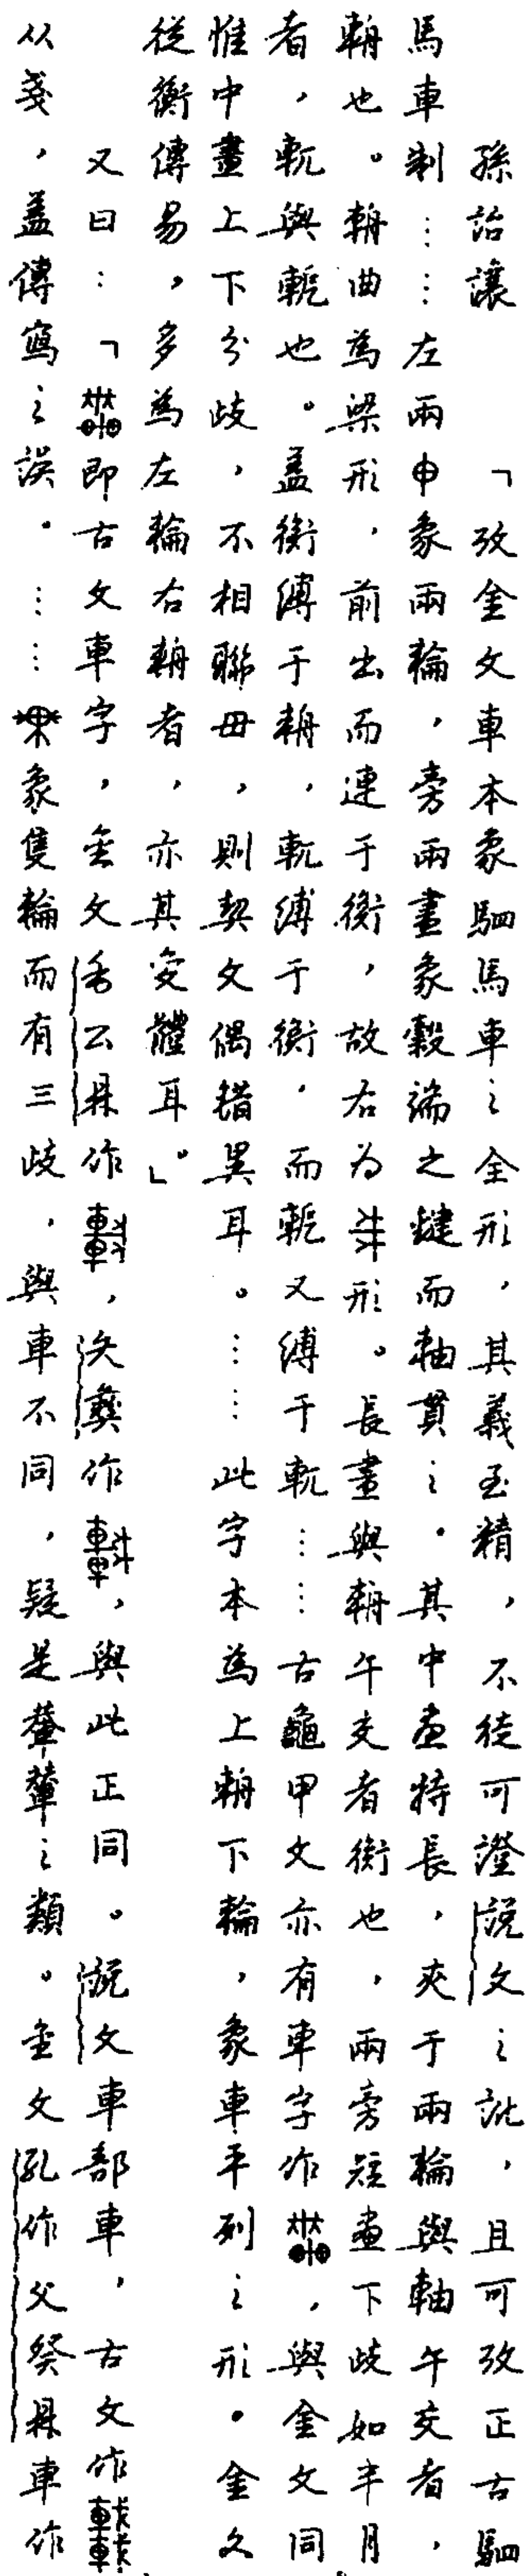 孫詒讓　「攷金文車本象駟馬車之全形，其義至精，不徒可證說文之訛，且可攷正古駟
馬車制……左兩申象兩輪，旁兩畫象轂耑之鍵而軸貫之。其中畫特長，夾于兩輪與軸午交者，
輈也。輈曲為梁形，前出而連于衡，故右為形。長畫與輈午交者衡也，兩旁短畫下歧如半月
者，軏與軶也。蓋衡縛于輈，軏縛于衡，而軶又縛于軏……古龜甲文亦有車字作，與金文同
惟中畫上下分歧，不相聯毌，則契文偶錯異耳。……此字本為上輈下輪，象車平列之形。金文
從衡傳易，多為左輪右輈者，亦其變體耳。」
又曰：「即古文車字，金文公彝作，矢彝作，與此正同。說文車部車，古文作
从戔，蓋傳寫之誤。……象隻輪而有三歧，與車不同，疑是輦之類。金文孔作父癸彝車作